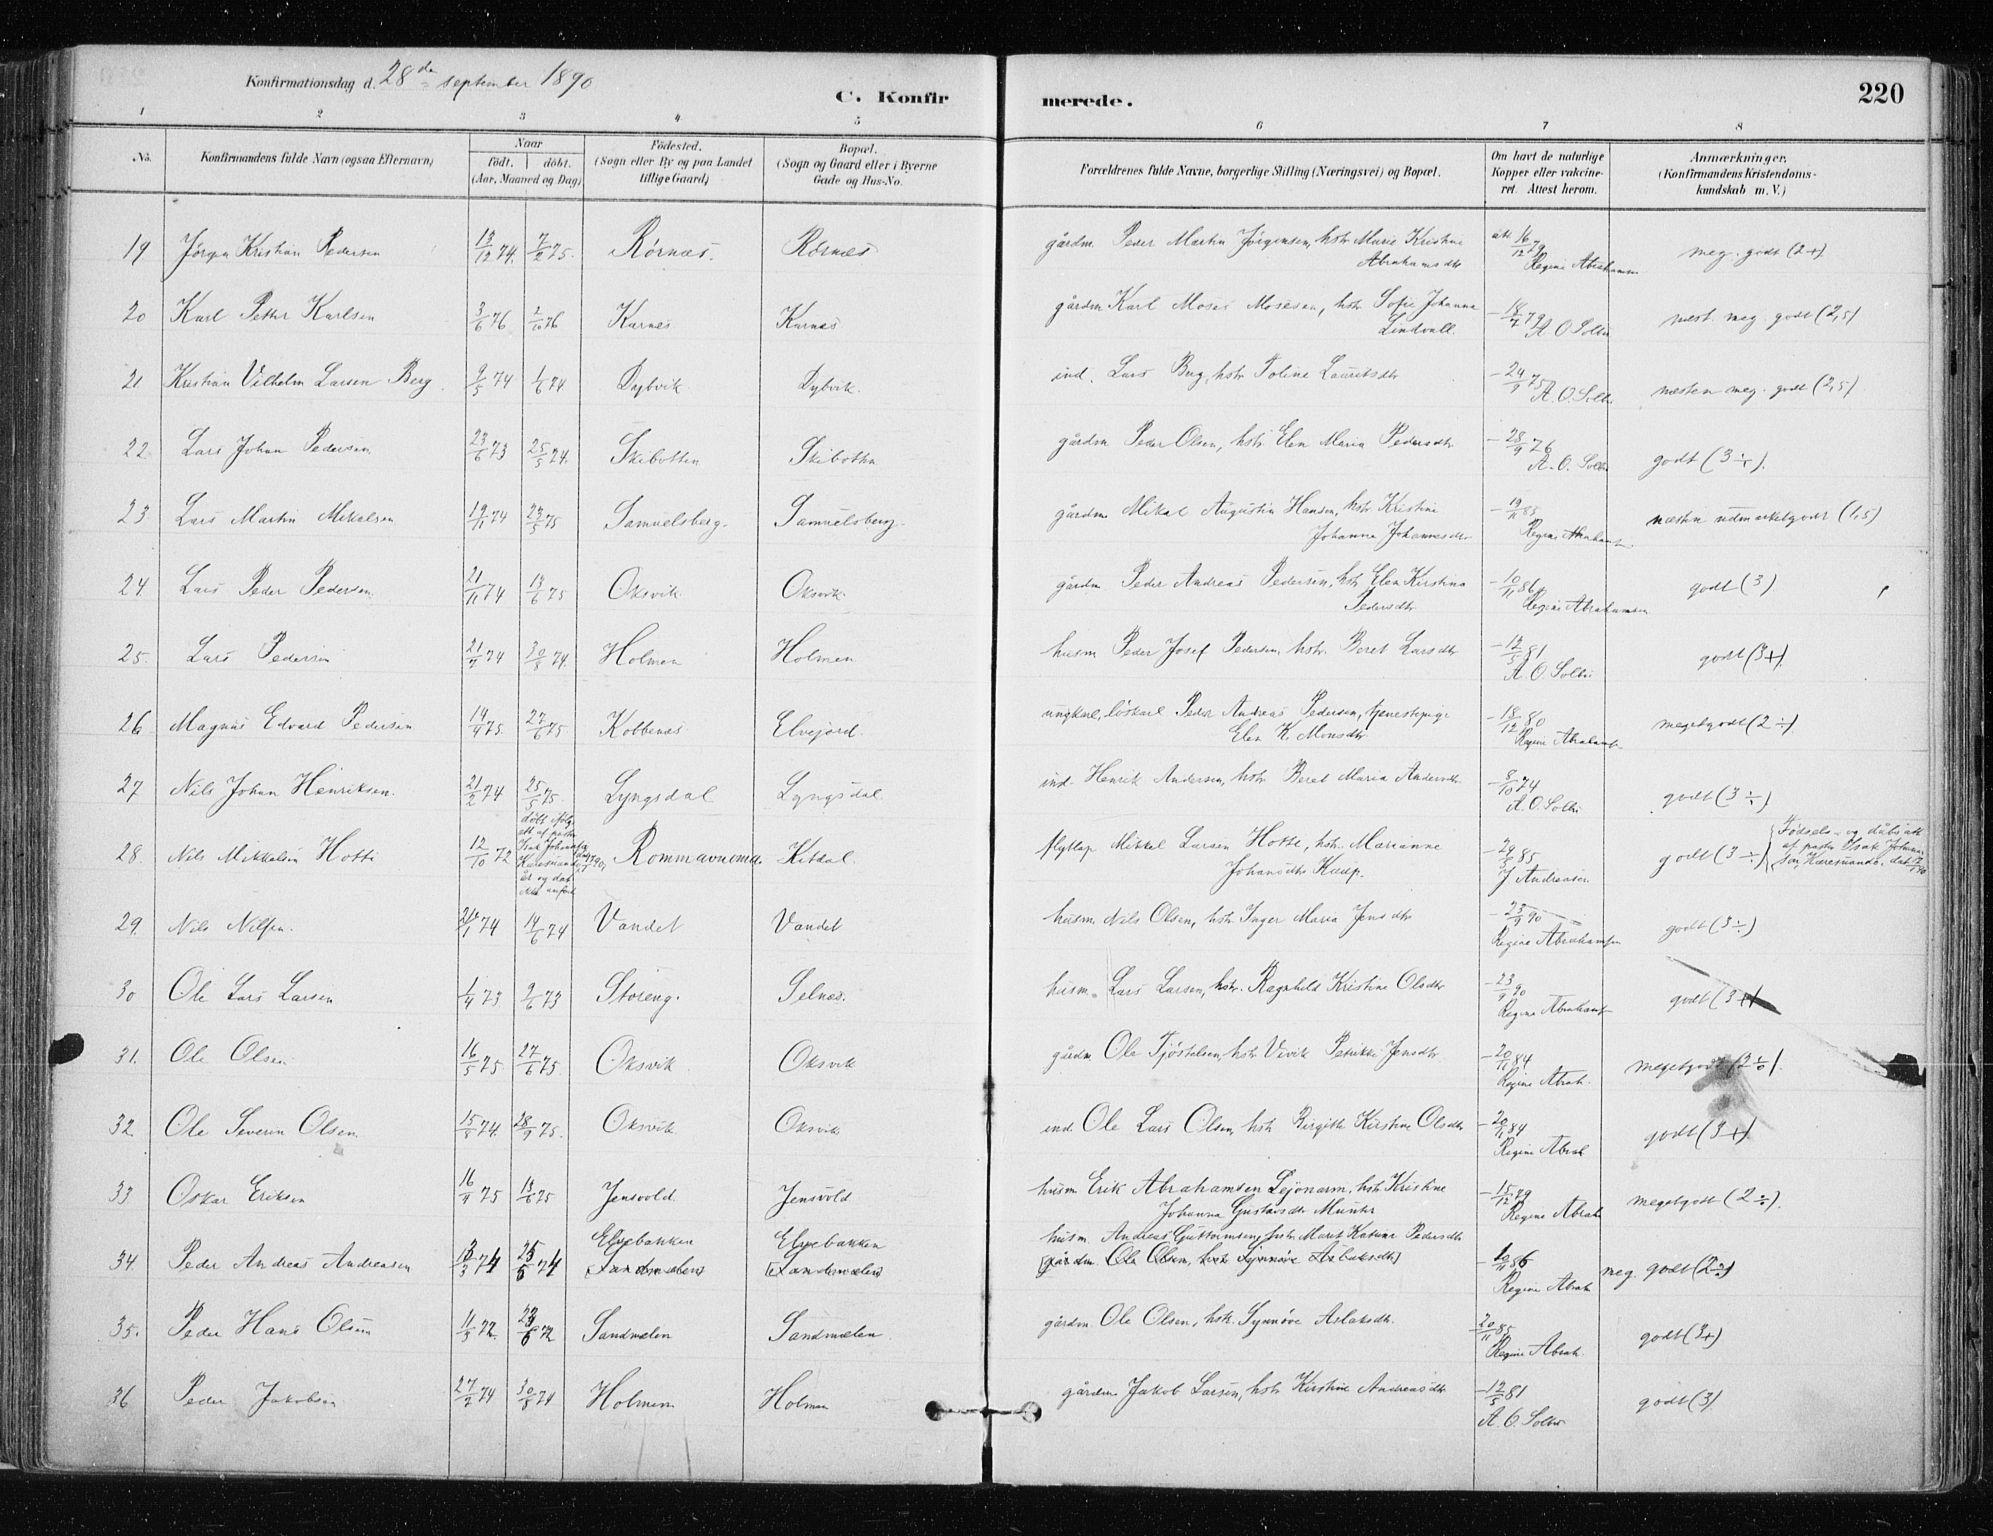 Konfirmationsdag d. 28de september 1890
C. Konfirmerede.
220
1 2 3 4 5 6 7 8
No. Konfirmandens fulde Navn (ogsaa Efternavn) Naar født. døbt. (Aar, Maaned og Dag) Fødested. (Sogn eller By og paa Landet tillige Gaard) Bopæl. (Sogn og Gaard eller i Byerne Gade og Hus-No. Forældrenes fulde Navne, borgerlige Stilling (Næringsvei) og Bopæl. Om havt de naturlige Kopper eller vakcineret. Attest herom. Anmærkninger. (Konfirmandens Kristendomskundskab m. V.)
19 Jörgen Kristian Pedersen 13/12 74. 7/2 75. Rörnæs. Rörnæs gårdm. Peder Martin Jörgensen, hstr Marie Kristine Abrahamsdtr att 16/12 79 Regine Abrahamsen meg. godt (2+)
20 Karl Petter Karlsen 3/6 76 2/10 76 Karnes Karnes gårdm Karl Moses Mosesen, hstr Sofie Johanna Lindvall. - 18/7 79 A O Solbri næst. meg. godt (2,5)
21 Kristian Vilhelm Larsen Berg 9/5 74 1/6 74 Dybvik Dybvik. ind. Lars Berg, hstr Toline Lauritsdtr - 24/9 75 A. O. Solbri næsten meg. godt (2,5)
22 Lars Johan Pedersen 23/6 73 25/5 74. Skibotten Skibotten gårdm Peder Olsen, hstr Elen Maria Pedersdtr - 28/9 76 A. O. Solbri godt (3÷).
23 Lars Martin Mikalsen 19/11 74 23/5 75 Samuelsberg. Samuelsberg. gårdm Mikal Augustin Hansen, hstr Kristine Johanna Johannesdtr - 19/11 85 Regine Abrahams. næsten udmærketgodt (1,5)
24 Lars Peder Pedersen 21/11 74 13/6 75 Oksvik Oksvik. gårdm Peder Andreas Pedersen, hstr Elen Kirstina Pedersdtr - 10/11 86 Regine Abrahamsen godt (3)
25. Lars Pedersen 21/2 74 30/8 74. Holmen Holmen husm Peder Josef Pedersen, hstr. Beret Larsdtr - 12/5 81 A. O. Solbri godt (3+).
26 Magnus Edvard Pedersen 14/4 75. 27/6 75 Kobbenæs Elvejord. ungkarl, löskarl Peder Andreas Pedersen, tjenestepige Elen K. Monsdtr - 18/12 80 Regine Abrahams. megetgodt (2÷)
27 Nils Johan Henriksen. 21/2 74 25/5 75. Lyngsdal Lyngsdal. ind. Henrik Andersen, hstr Beret Maria Andersdtr - 8/10 74 A. O. Solbri godt (3÷)
28. Nils Mikkelsen Hotti 12/10 72 Rommavuoma. Kitdal. flytlap Mikkel Larsen Hotte, hstr. Marianne Johansdtr Kaup. - 29/5 85 J Andreasen godt (3÷) {Fødsels- og dåbsatt af pastor Isak Johansson, Karesuando,
29. Nils Nilsen. 74 14/6 74 Vandet Vandet husm Nils Olsen, hstr Inger Maria Jensdtr - 23/9 90 Regine Abrahamsen godt (3÷)
30 Ole Lars Larsen 1/4 73 9/6 73 Storeng. Selnæs. husm. Lars Larsen, hstr. Ragnhild Kristine Olsdtr - 23/9 90 Regine Abrahams. godt (3+)
31. Ole Olsen. 16/5 75 27/6 75. Oksvik. Oksvik gårdm Ole Tjöstelsen, hstr Vivik Petrikke Jensdtr. - 20/11 84 Regine Abrah. megetgodt (2÷).
32. Ole Severin Olsen. 15/8 74. 28/9 75. Oksvik Oksvik ind. Ole Lars Olsen, hstr Birgitte Kirstine Olsdtr - 20/11 84 Regine Abrah godt (3+)
33 Oskar Eriksen 16/4 75 13/6 75 Jensvold. Jensvold husm Erik Abrahamsen Lejonarm, hstr Kristine Johanna Gustavsdtr Munter - 15/12 79 Regine Abrah megetgodt (2÷).
34 Peder Andreas Andreasen 74 74 Elvebakken [Sandmælen] Elvebakken [Sandmælen] husm. Andreas Guttormsen, hstr Maret Katrine Pedersdtr [gårdm Ole Olsen, hstr Synnöve Aslaksdtr] - 10/11 86 Regine Abrah meg. godt (2÷)
35. Peder Hans Olsen 11/3 72. 72 Sandmælen Sandmælen. gårdm. Ole Olsen, hstr. Synnöve Aslaksdtr. 20/11 85 Regine Abrah. godt (3+)
36 Peder Jakobsen 27/2 74 30/8 74 Holmen Holmen gårdm Jakob Larsen, hstr Kirstine Andreasdtr - 12/5 81 A. O. Solbri godt (3)